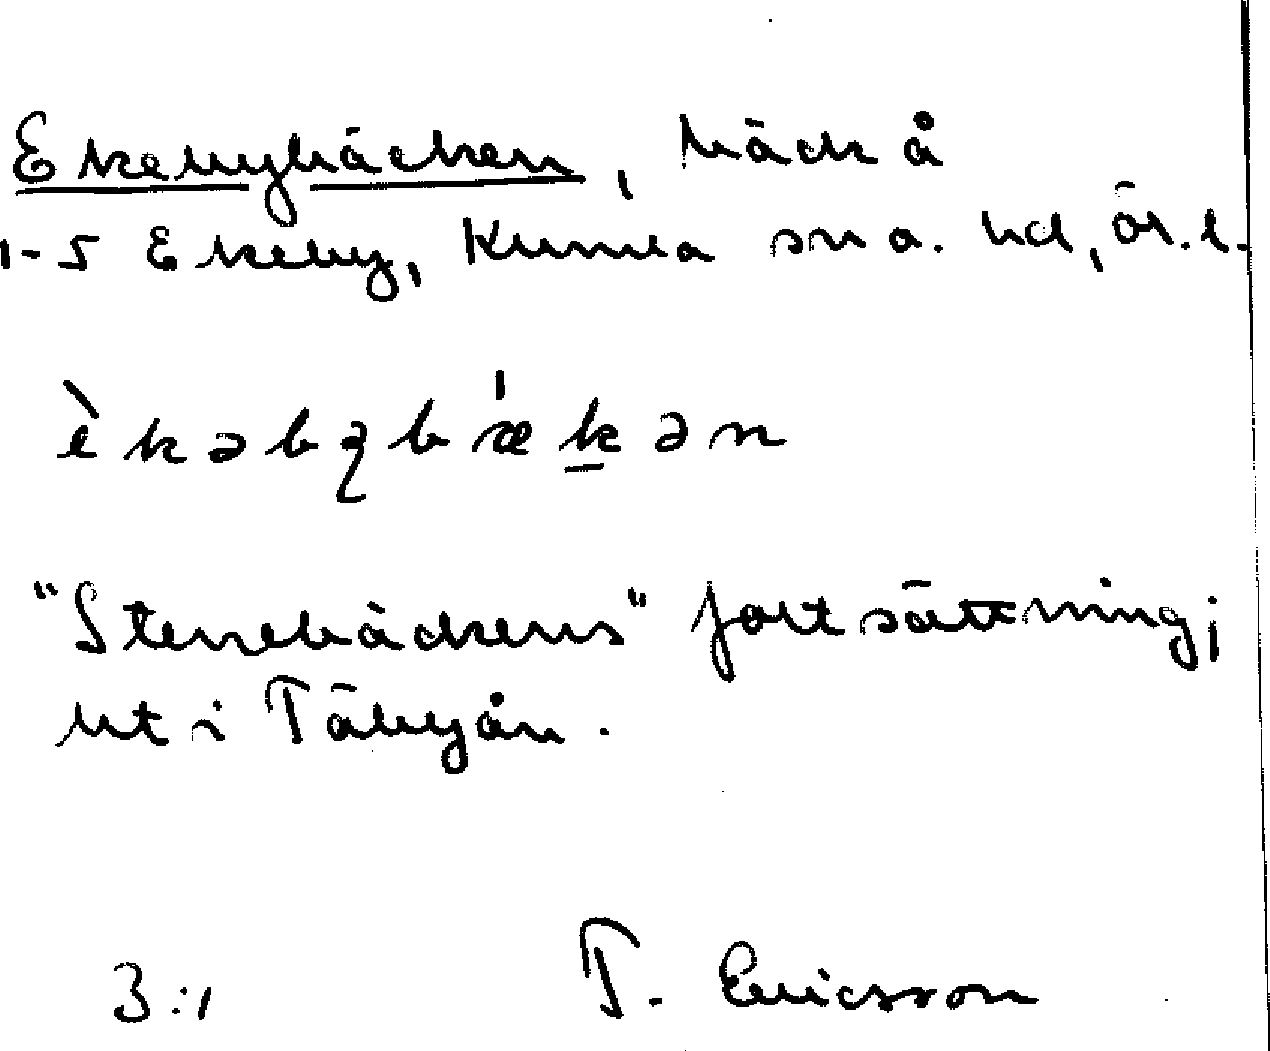 Ekebybäcken, bäck å
1-5 Ekeby, Kumla sn o. hd, ör. l.
èkəbybǽkən
"Stenebäckens" fortsättning;
ut i Täbyån.
3:1 T. Ericsson